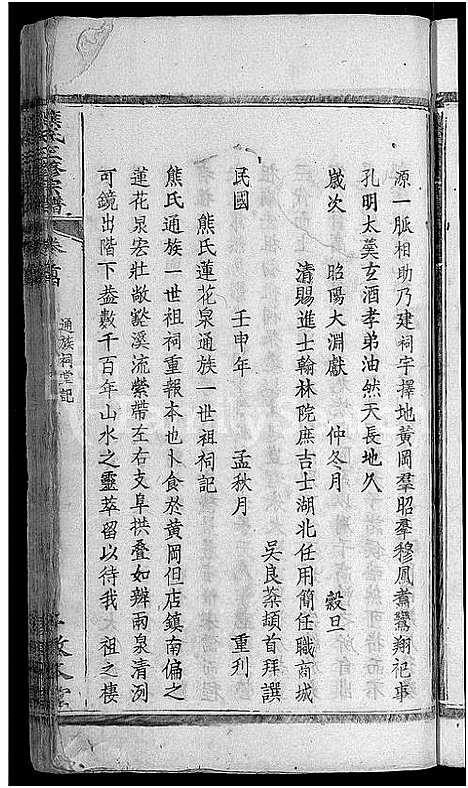 源一脈相助乃建祠宇擇地黃岡羣昭羣穆鳳翥鸞翔祀事
孔明太羹玄酒孝弟油然天長地久
歲次 昭陽大淵獻 仲冬月 穀旦
清賜進士翰林院庶吉士湖北任用簡任職商城
吳良棻頓首拜譔
民國 壬申年 孟秋月 重刊
熊氏蓮花泉通族一世祖祠記
熊氏通族一世祖祠重報本也卜食於黃岡但店鎮南偏之
蓮花泉宏壯敞豁溪流縈帶左右支阜拱疊如辦兩泉清洌
可鏡出階下益數千百年山水之靈萃留以待我太祖之棲
熊氏 修宗譜
卷首
通族祠堂記